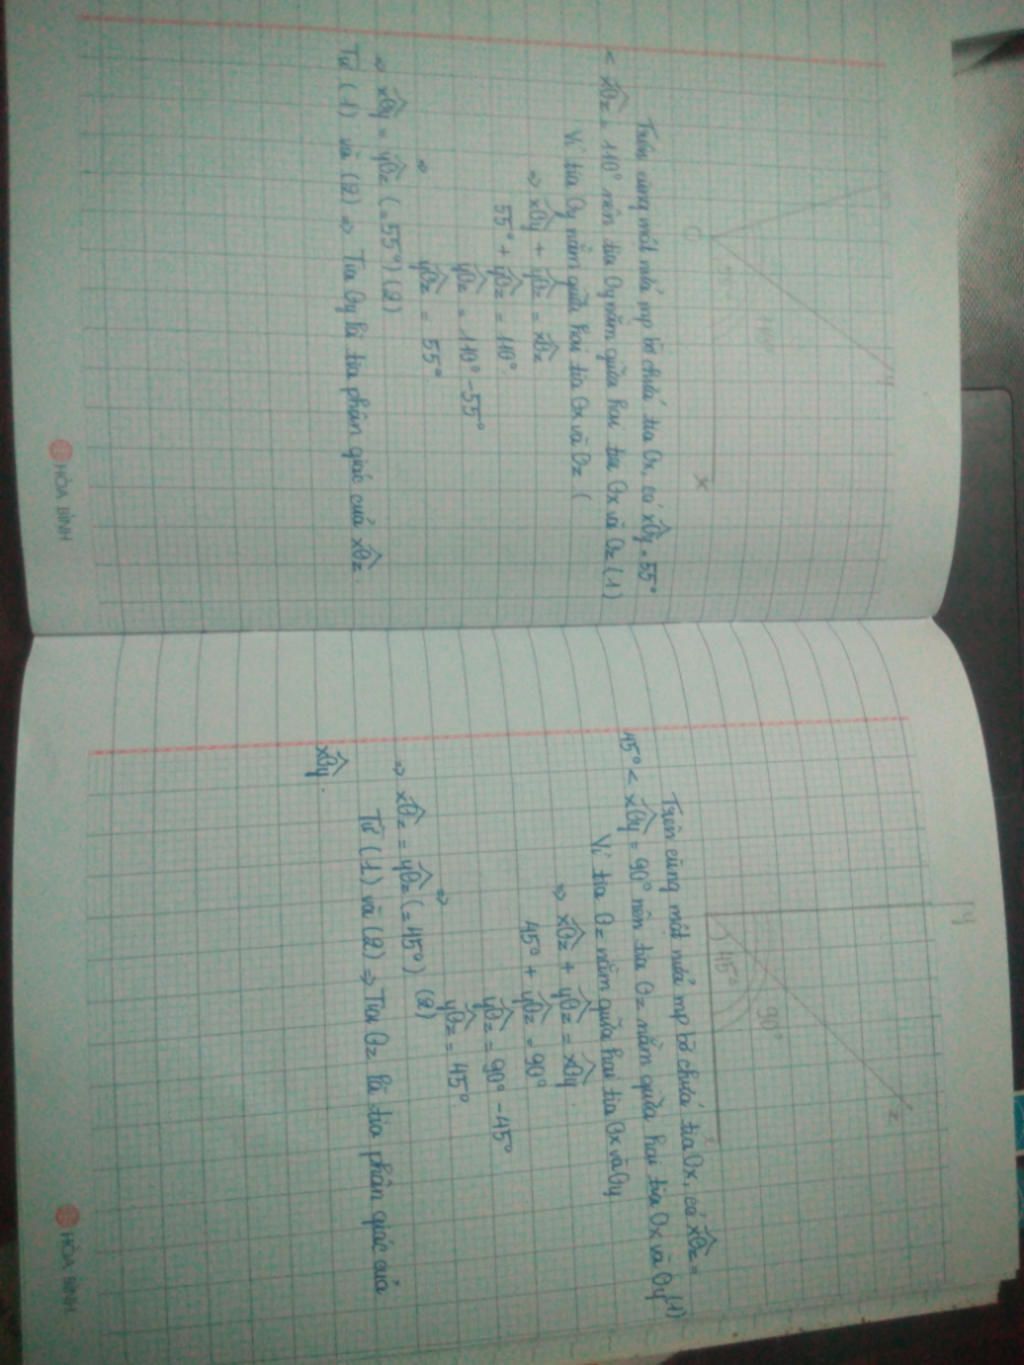 x
y
O
55°
110°
Trên cùng một nửa mp bờ chứa tia Ox, có x͡Oy = 55°
< x͡Oz = 110° nên tia Oy nằm giữa hai tia Ox và Oz (1)
Vì tia Oy nằm giữa hai tia Ox và Oz (
=> x͡Oy + y͡Oz = x͡Oz
55° + y͡Oz = 110°
y͡Oz = 110° - 55°
=> y͡Oz = 55°
=> x͡Oy = y͡Oz (= 55°) (2)
Từ (1) và (2) => Tia Oy là tia phân giác của x͡Oz.
HÒA BÌNH
y
z
45°
90°
Trên cùng một nửa mp bờ chứa tia Ox, có x͡Oz =
45° < x͡Oy = 90° nên tia Oz nằm giữa hai tia Ox và Oy (1)
Vì tia Oz nằm giữa hai tia Ox và Oy
=> x͡Oz + y͡Oz = x͡Oy.
45° + y͡Oz = 90°
y͡Oz = 90° - 45°
=> y͡Oz = 45°
=> x͡Oz = y͡Oz (= 45°) (2)
Từ (1) và (2) => Tia Oz là tia phân giác của
x͡Oy.
HÒA BÌNH